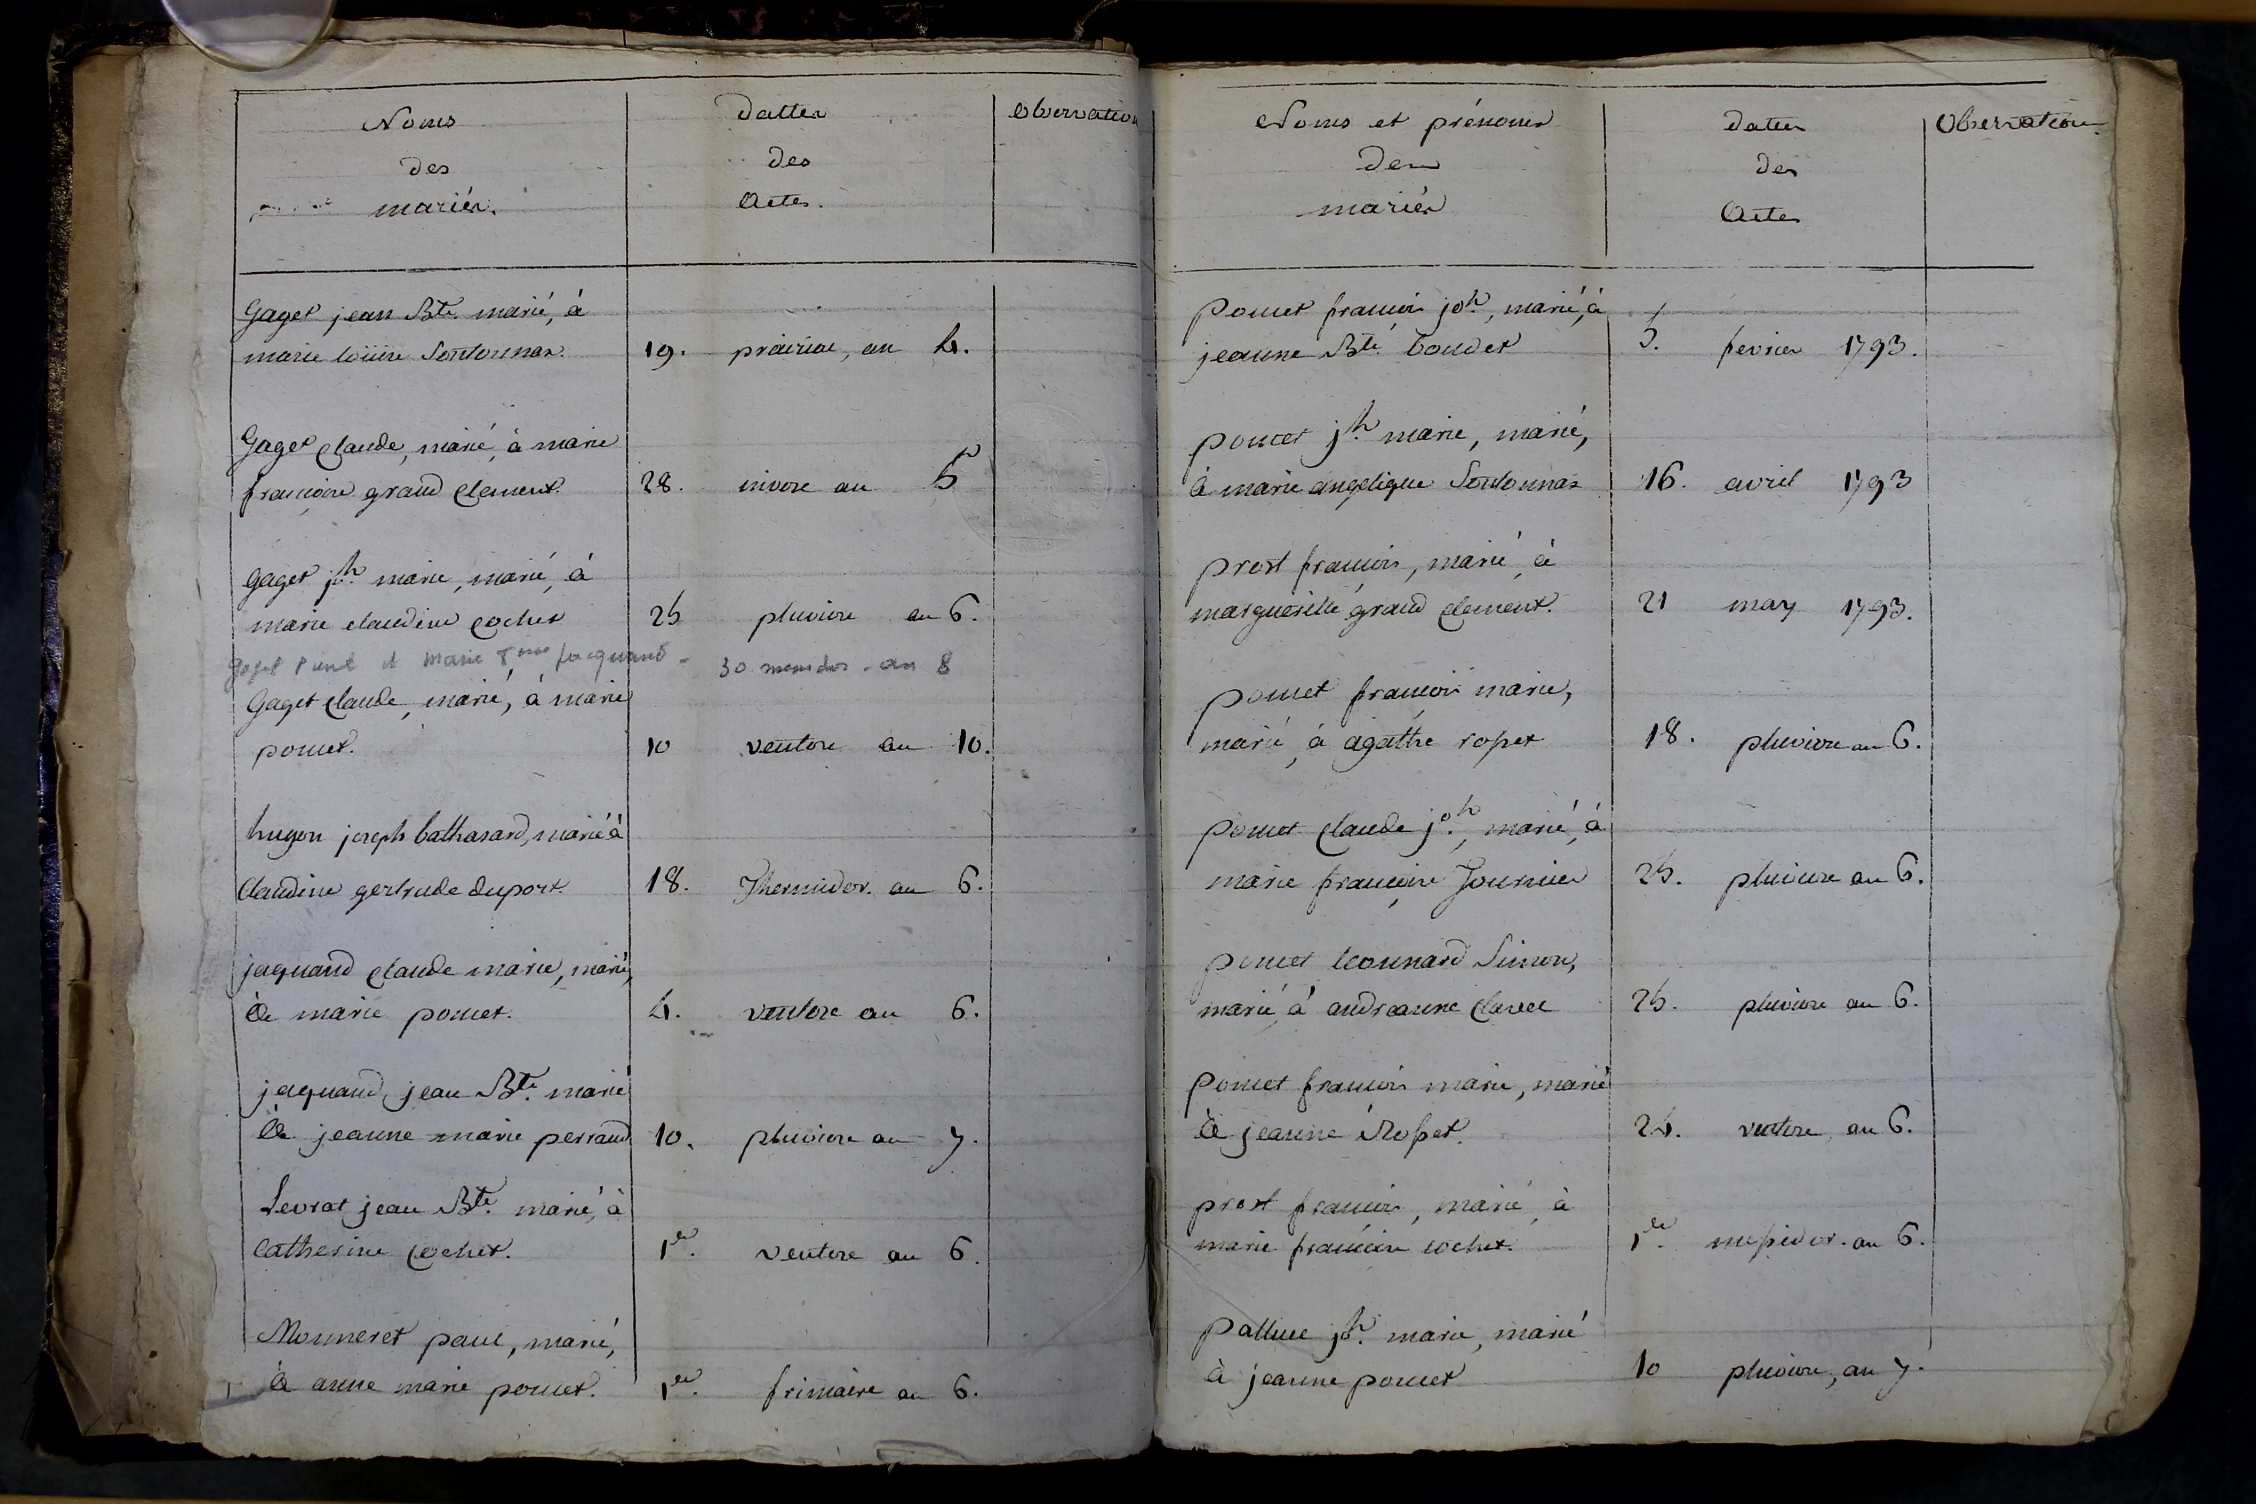 Noms
des
mariés.
dattes
des
Actes.
Observation
Gaget jean Bte. marié, à
marie louise Sontonnas.
19. prairial, an 4.
Gaget Claude, marié, à marie
françoise grand Clement.
28. nivose an 5
Gaget jh. marie, marié, à
marie claudine Cochet
25 pluviose an 6.
Gaget et Marie jacquand - 30 messidor - an 8
Gaget Claude, marié, à marie
poncet.
10 ventose an 10.
hugon joseph bathasard, marié à
Claudine gertrude duport.
18. Thermidor. an 6.
jaquand Claude marie, marié,
à marie poncet.
4. ventose an 6.
jaquand, jean Bte. marié
à jeanne marie perraud
10. pluviose an 7.
Levrat jean Bte. marié, à
Catherine Cochet.
1er. ventose an 6.
Monneret paul, marié,
à anne marie poncet.
1er. frimaire an 6.
Noms et prénoms
des
mariés
dates
des
Actes
Observation.
Poncet francois joh, marié, à
jeanne Bte. boudet
5. fevrier 1793.
poncet jh. marie, marié,
à marie angelique Sontonnas
16. avril 1793
prost francois, marié, à
margueritte grand Clement.
21 may 1793.
poncet francois marie,
marié, à agathe rosset
18. pluviose an 6.
poncet Claude joh., marié, à
marie françoise Journier
25. pluviose an 6.
poncet leonnard Simon,
marié, à andreanne Clavel
25. pluviose an 6.
poncet francois marie, marié
à jeanne Rosset.
24. ventose, an 6.
prost francois, marié, à
marie françoise cochet.
1er. messidor. an 6.
Palluce joh. marie, marié
à jeanne poncet
10 pluviose, an 7.